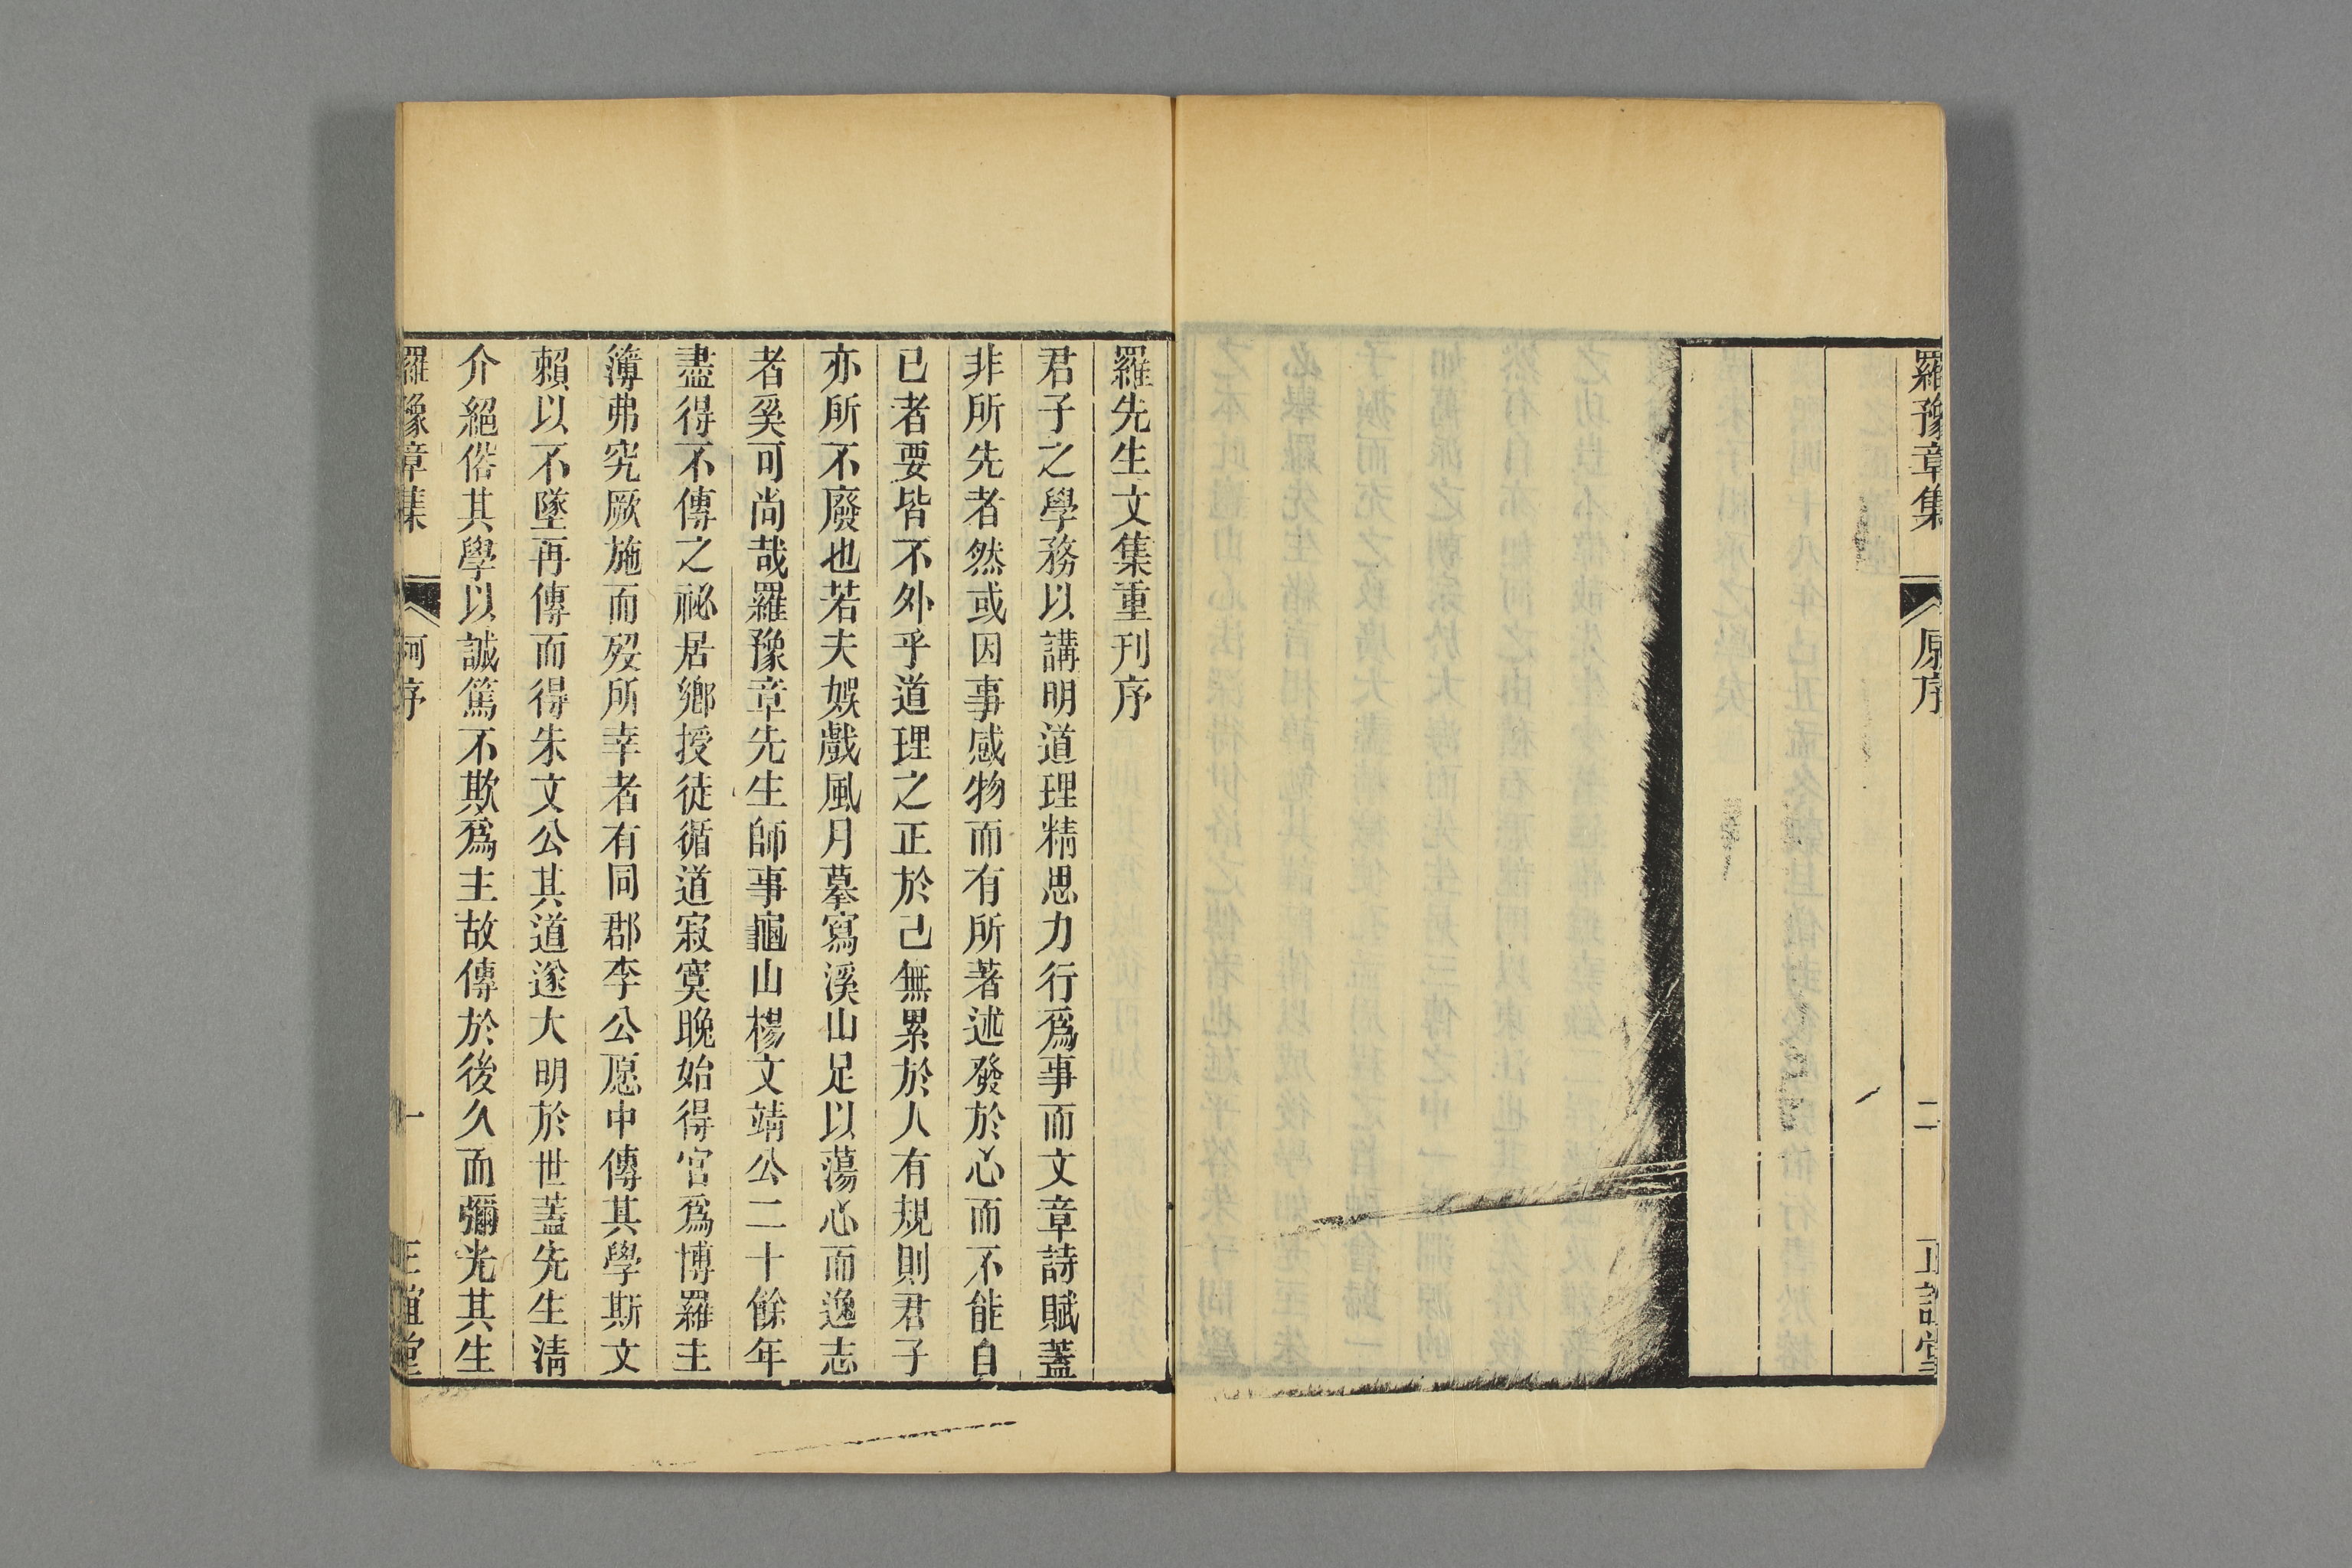 羅豫章集 原序 二 正誼堂
羅先生文集重刊序
君子之學務以講明道理精思力行爲事而文章詩賦蓋
非所先者然或因事感物而有所著述發於心而不能自
已者要皆不外乎道理之正於己無累於人有規則君子
亦所不廢也若夫娛戲風月摹寫溪山足以蕩心而逸志
者奚可尚哉羅豫章先生師事龜山楊文靖公二十餘年
盡得不傳之祕居鄉授徒循道寂寞晚始得官爲博羅主
簿弗究厥施而歿所幸者有同郡李公愿中傳其學斯文
賴以不墜再傳而得朱文公其道遂大明於世蓋先生清
介絕俗其學以誠篤不欺爲主故傳於後久而彌光其生
羅豫章集 柯序 一 正誼堂